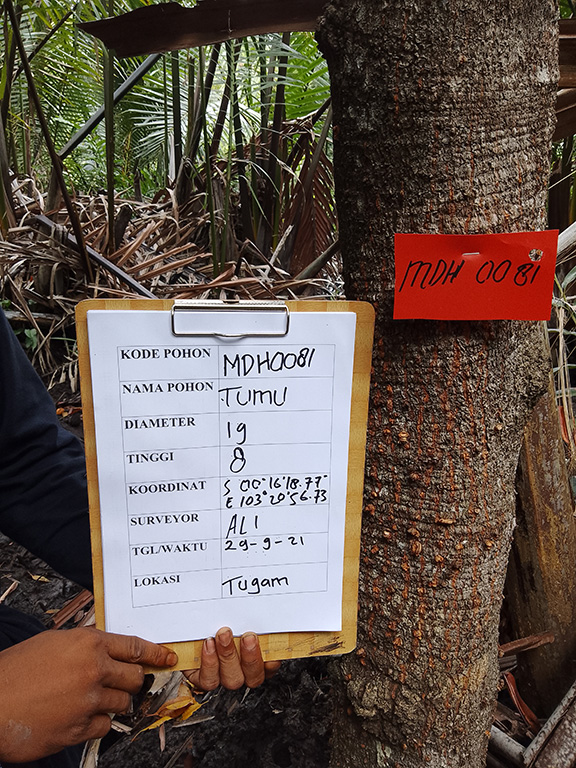 MDH 0081
KODE POHON MDH0081
NAMA POHON TUMU
DIAMETER 19
TINGGI 8
KOORDINAT S 00°16'18.77"
E 103°20'56.73
SURVEYOR ALI
TGL/WAKTU 29-9-21
LOKASI Tugam